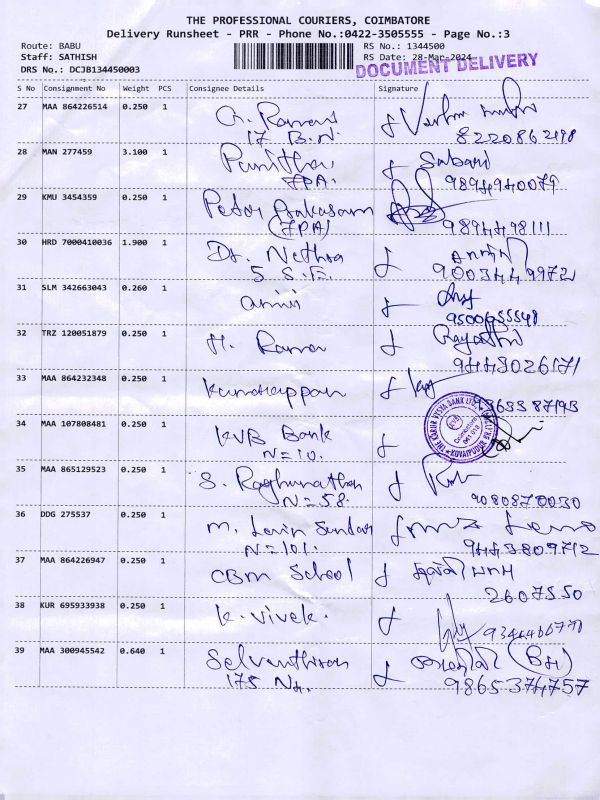 THE PROFESSIONAL COURIERS, COIMBATORE
Delivery Runsheet - PRR - Phone No.:0422-3505555 - Page No.:3
Route: BABU RS No.: 1344500
Staff: SATHISH RS Date: 28-Mar-2024
DRS No.: DCJB134450003 DOCUMENT DELIVERY
S No Consignment No Weight PCS Consignee Details Signature
27 MAA 864226514 0.250 1
17 B.N. 8220862198
28 MAN 277459 3.100 1 Punitha Sabari
JPA. 9894940079
29 KMU 3454359 0.250 1 Peter Prakasam
(JPA) 9894498111
30 HRD 7000410036 1.900 1 Dr. Nethra
5 S.E. 9003449972
31 SLM 342663043 0.260 1
9500655548
32 TRZ 120051879 0.250 1 H. Rama Gayathri
9443026171
33 MAA 864232348 0.250 1 Kandhappan
34 MAA 107808481 0.250 1 KVB Bank THE KARUR VYSYA BANK LTD.
N=10.
35 MAA 865129523 0.250 1 S. Raghunathan
N=58. 9080870030
36 DDG 275537 0.250 1
N=101. 9443809712
37 MAA 864226947 0.250 1 CBM School
2607550
38 KUR 695933938 0.250 1 K. Vivek.
39 MAA 300945542 0.640 1
175 9865374757